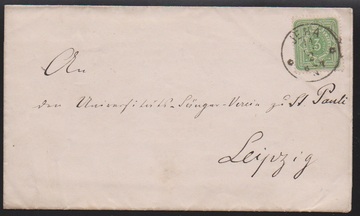 JENA
An
den Universitäts-Sänger-Verein zu St Pauli
Leipzig